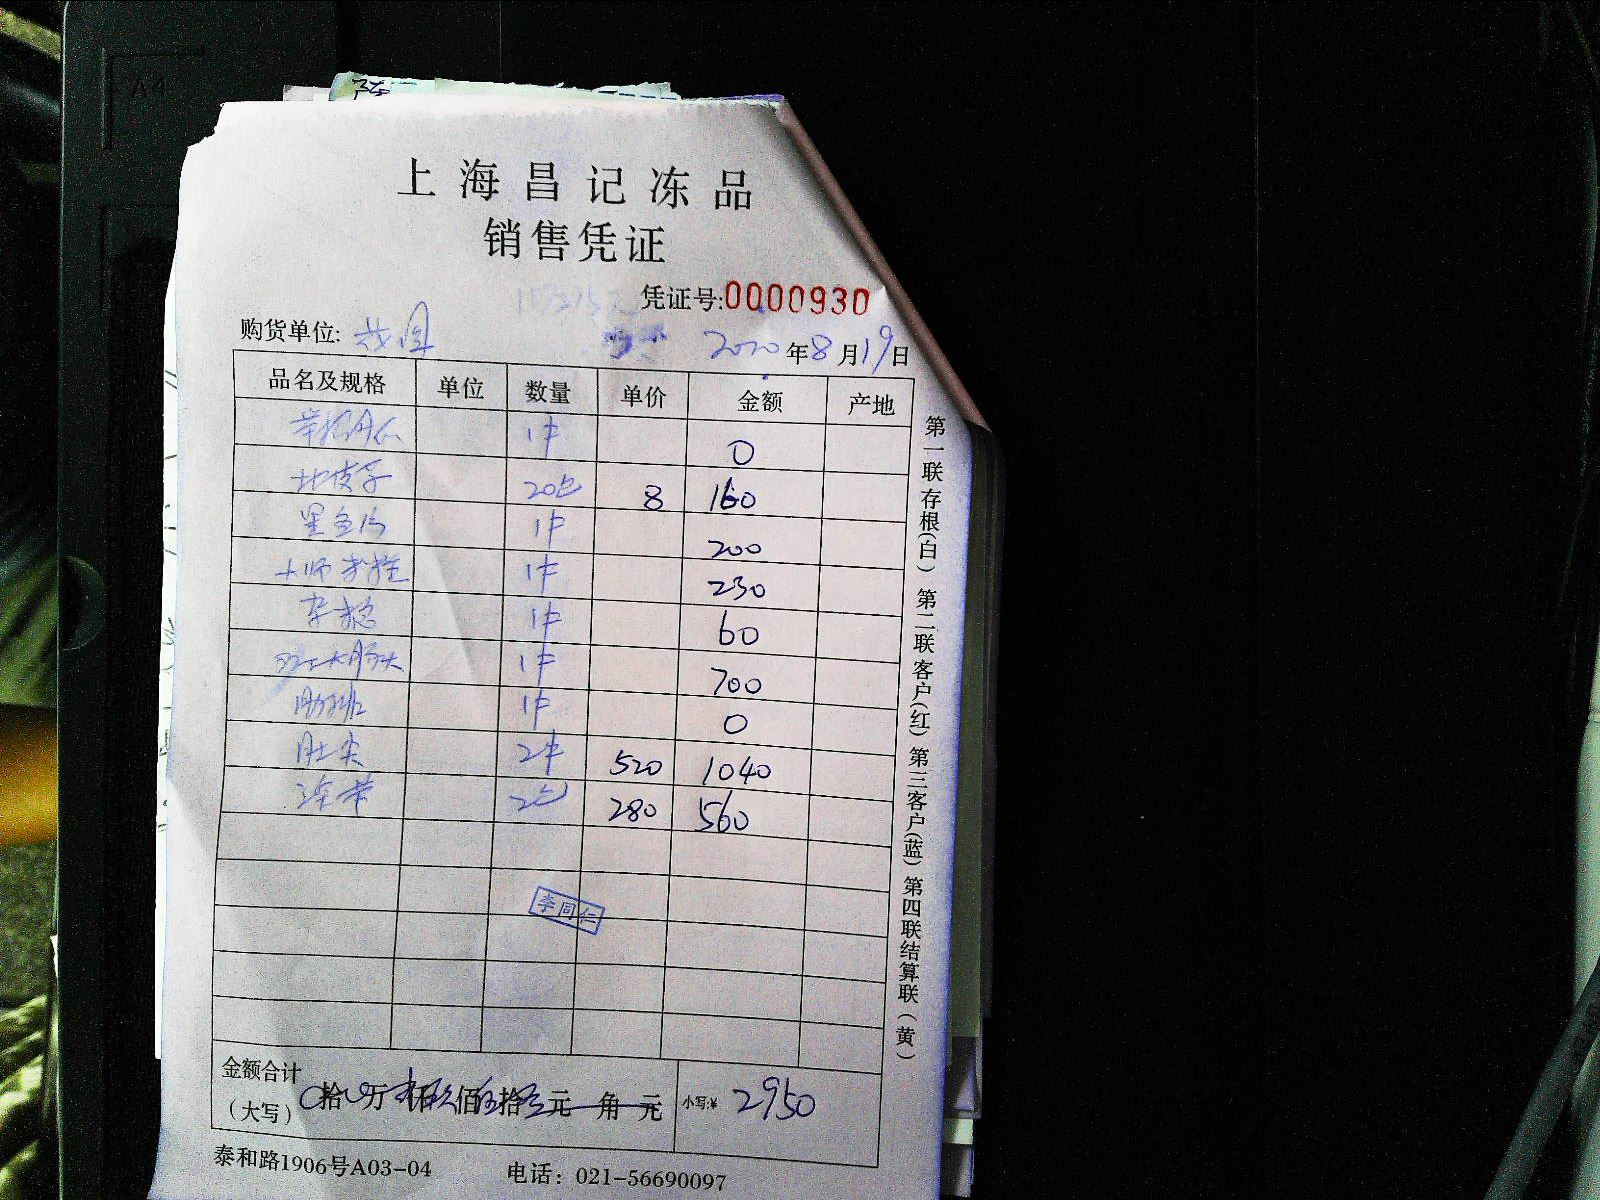 A4
上海昌记冻品
销售凭证
凭证号:0000930
购货单位:
2020年8月19日
品名及规格 单位 数量 单价 金额 产地
1件 0
地皮子 20包 8 160
1件 200
1件 230
1件 60
1件 700
肋排 1件 0
肚尖 2件 520 1040
海带 2包 280 560
李同仁
金额合计
(大写) 拾 万 仟 佰 拾 元 角 元 小写:¥ 2950
泰和路1906号A03-04 电话：021-56690097
第一联存根(白) 第二联客户(红) 第三客户(蓝) 第四联结算联(黄)